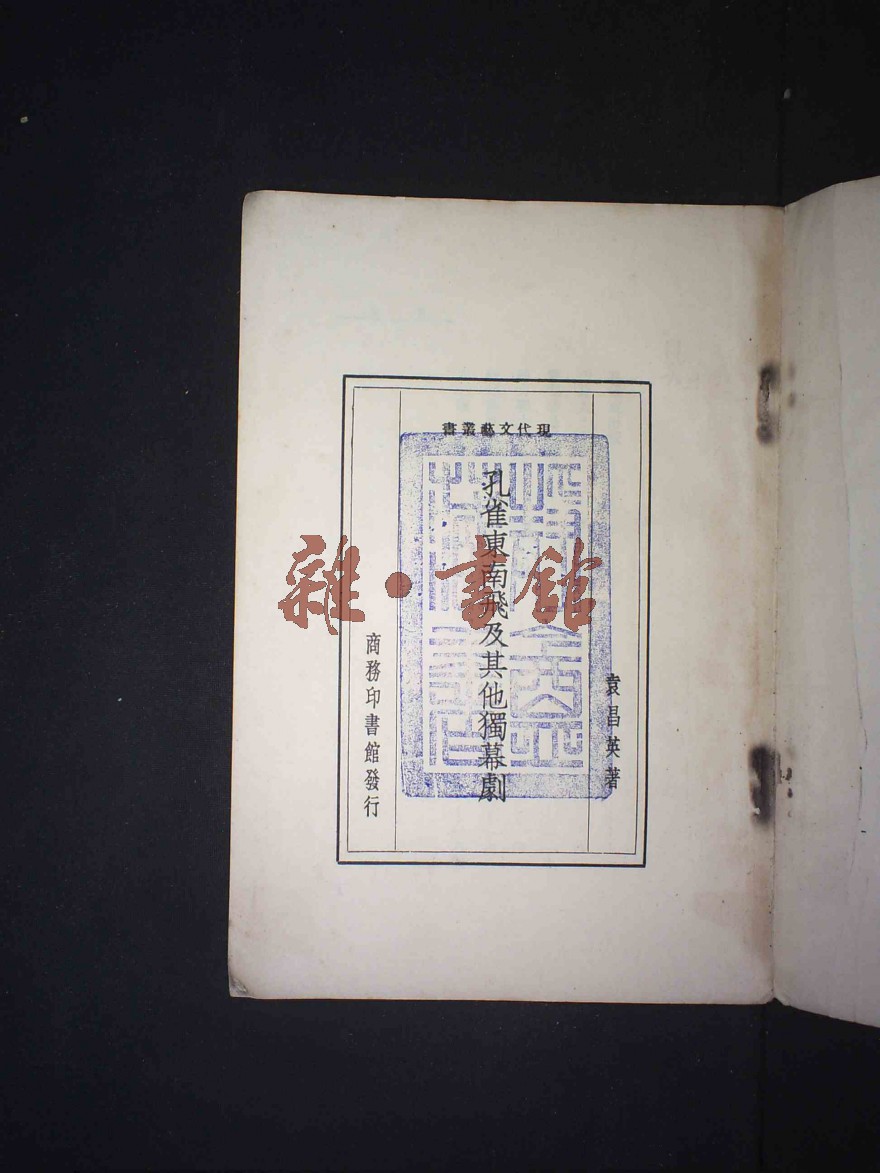 現代文藝叢書
袁昌英著
孔雀東南飛及其他獨幕劇
商務印書館發行
雜·書館